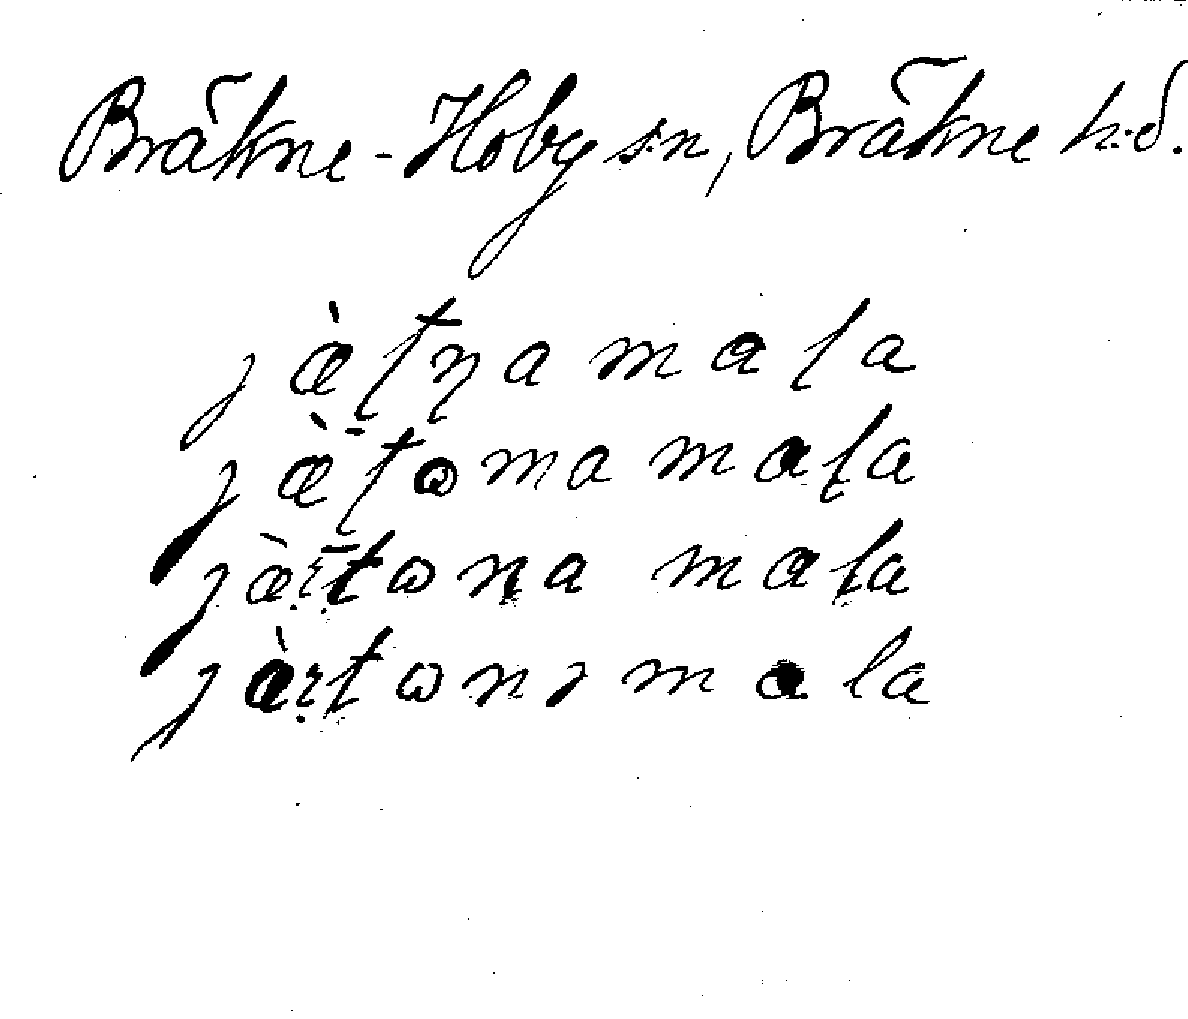 Bräkne-Hoby sn, Bräkne hd.
jæ̀ʈɳa mala
jæ̀ʈɷma maɭa
jæ̀rtɷna mala
jæ̀rtɷnɿ mala